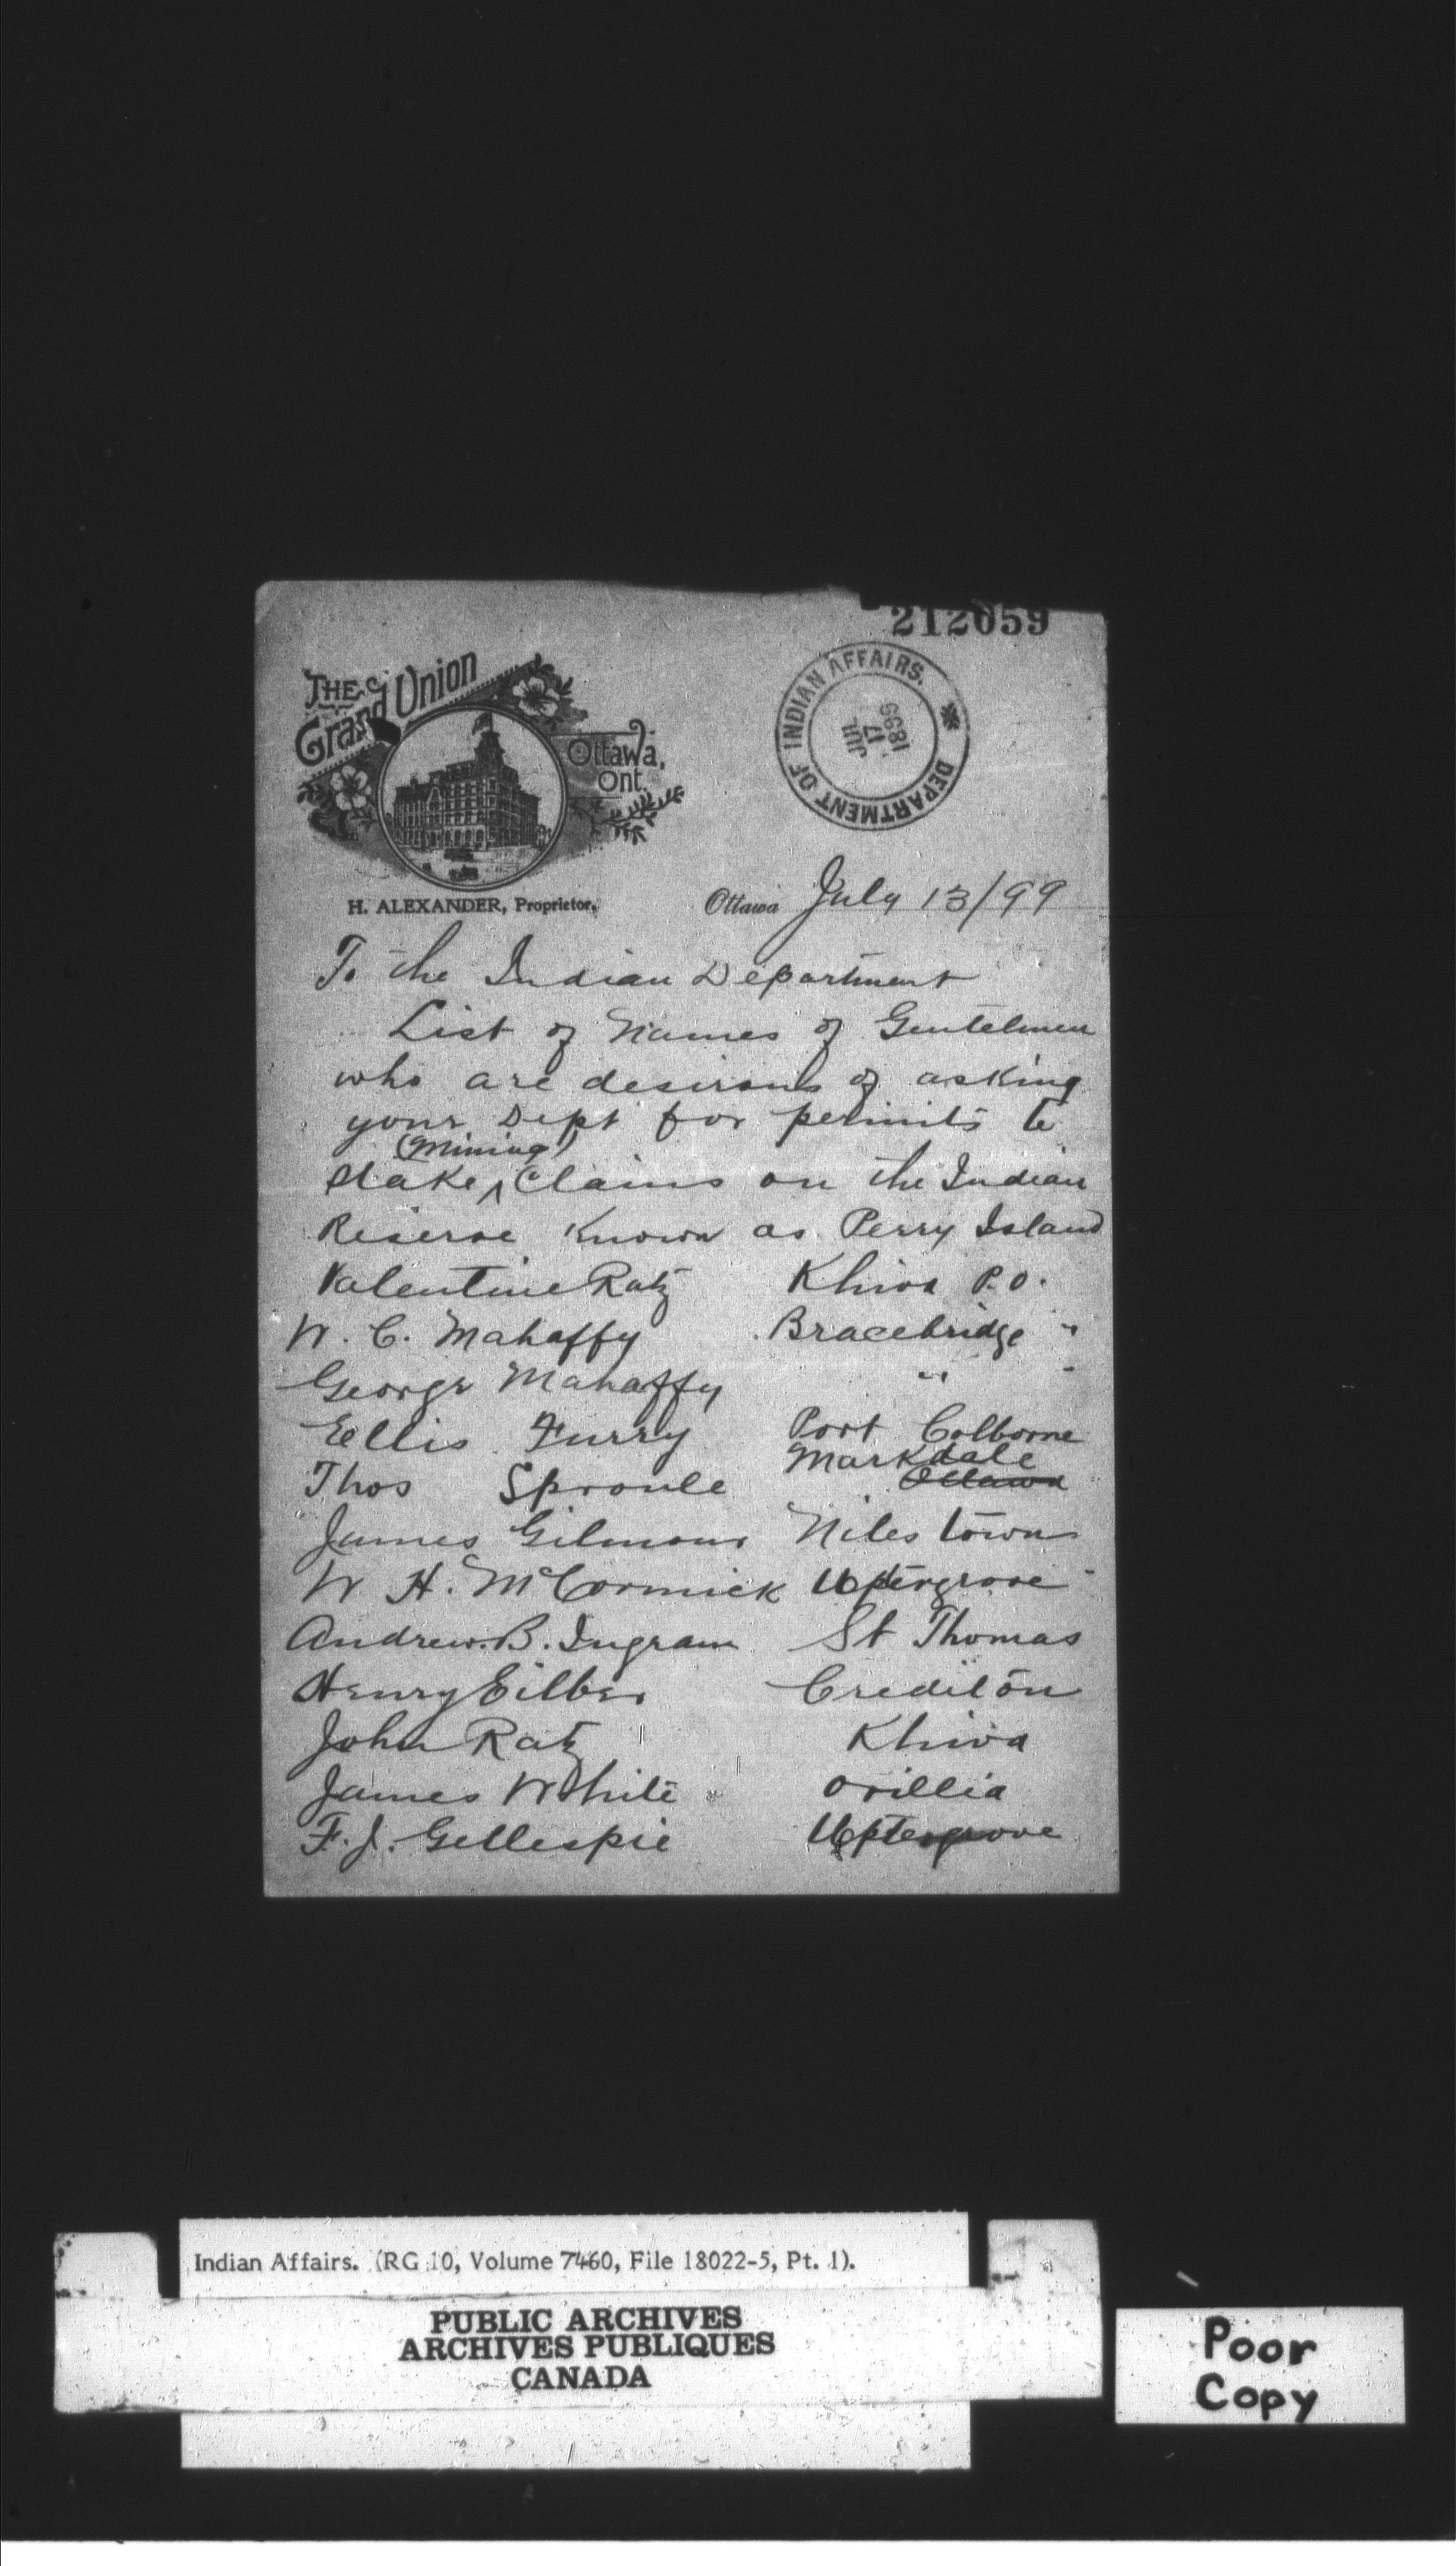 212059
THE
Grand Union
Ottawa,
Ont.
H. ALEXANDER, Proprietor,
DEPARTMENT OF INDIAN AFFAIRS.
JUL 17 1899
Ottawa July 13/99
To the Indian Department
List of Names of Gentelmen
who are desirous of asking
your Dept for permits to
(Mining)
Stake ^ Claims on the Indian
Reserve Known as Perry Island
Valentine Ratz Khiva P.O.
W. C. Mahaffy Bracebridge "
George Mahaffy " "
Ellis Furry Port Colborne
Markdale
Thos Sproule Ottawa
James Gilmour Niles town
W H. McCormick Uptergrove
Andrew. B. Ingram St Thomas
Henry Eilber Crediton
John Ratz Khiva
James White Orillia
F. J. Gellespie Uptergrove
Indian Affairs. (RG 10, Volume 7460, File 18022-5, Pt. 1).
PUBLIC ARCHIVES
ARCHIVES PUBLIQUES
CANADA
Poor
Copy